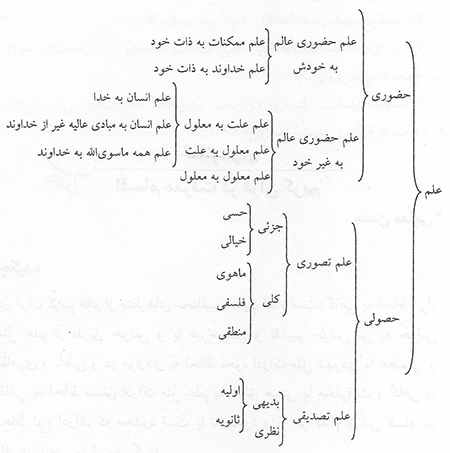 علم
حضوری
علم حضوری عالم
به خودش
علم ممکنات به ذات خود
علم خداوند به ذات خود
علم حضوری عالم
به غیر خود
علم علت به معلول
علم معلول به علت
علم معلول به معلول
علم انسان به خدا
علم انسان به مبادی عالیه غیر از خداوند
علم همه ماسوی‌الله به خداوند
حصولی
علم تصوری
جزئی
حسی
خیالی
کلی
ماهوی
فلسفی
منطقی
علم تصدیقی
بدیهی
اولیه
ثانویه
نظری